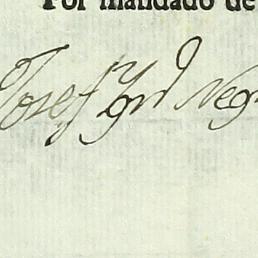 Por mandado de
Josef Ygn.º Neg